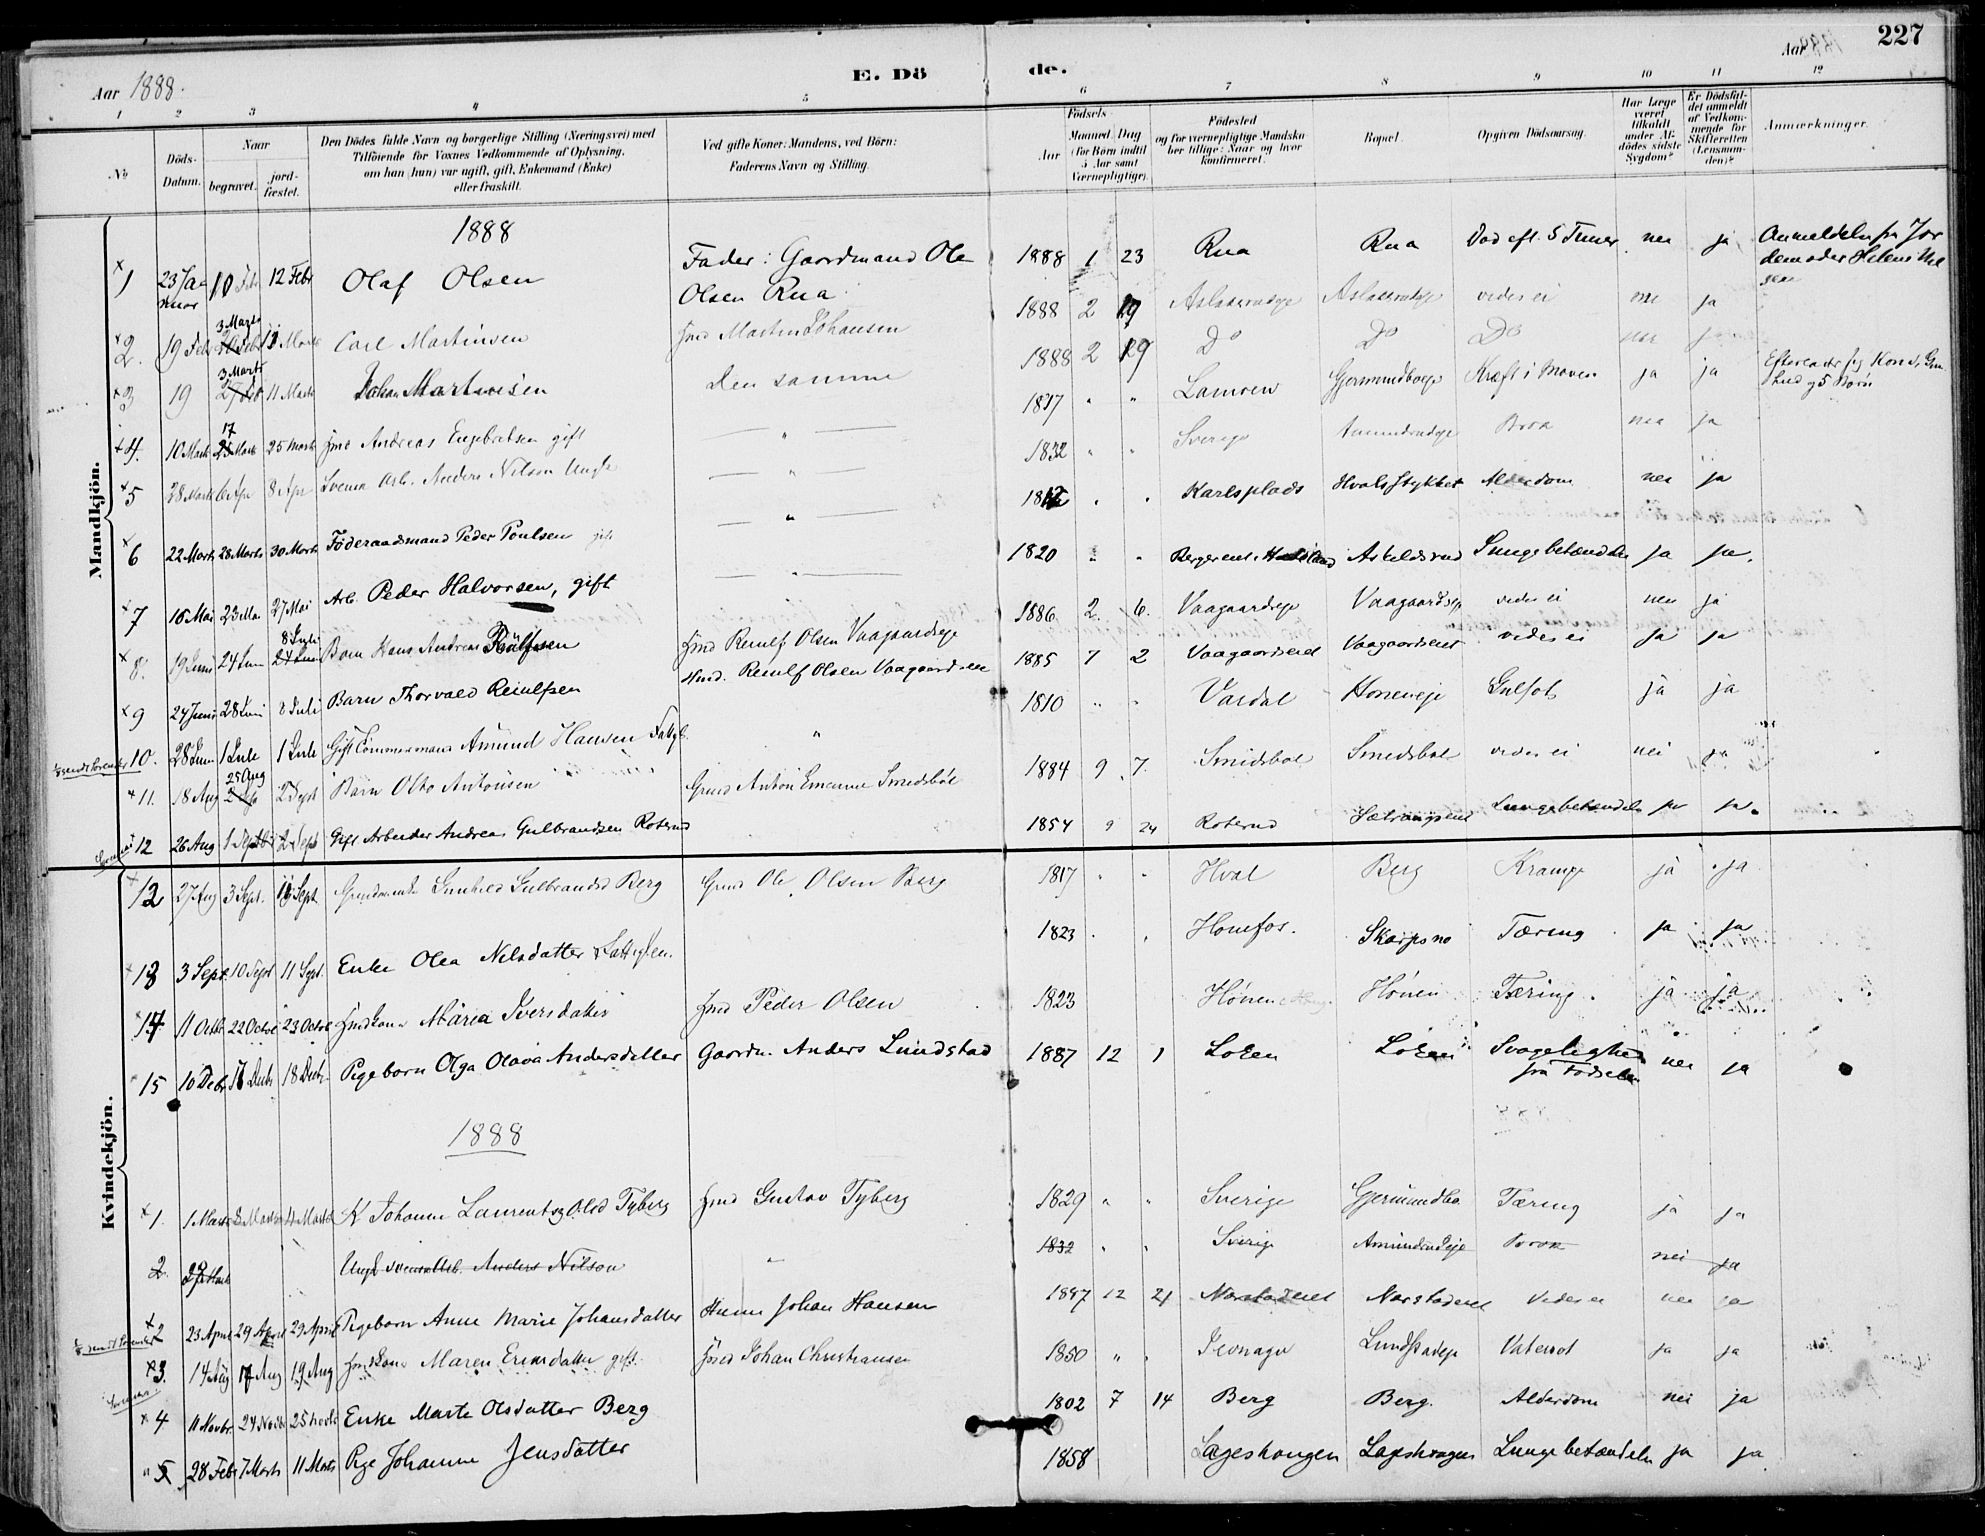 227
Aar 1888.
E. Dö de.
Aar
1 2 3 4 5 6 7 8 9 10 11 12
No
Döds-Datum.
Naar
begravet. jord-fæstet.
Den Dödes fulde Navn og borgerlige Stilling (Næringsvei) med
Tilföiende for Voxnes Vedkommende af Oplysning,
om han (hun) var ugift, gift, Enkemand (Enke)
eller fraskilt.
Ved gifte Koner: Mandens, ved Börn:
Faderens Navn og Stilling.
Födsels-
Aar Maaned Dag
(for Börn indtil
5 Aar samt
Værnepligtige).
Födested
og for værnepligtige Mandskaber tillige: Naar og hvor konfirmeret.
Bopæl.
Opgiven Dödsaarsag.
Har Læge været tilkaldt under Afdödes sidste Sygdom?
Er Dödsfaldet anmeldt af Vedkommende for Skifteretten (Lensmanden)?
Anmærkninger.
Mandkjön.
1888
1 23 Januar 10 Febr 12 Febr Olaf Olsen Fader: Gaardmand Ole Olsen Rua 1888 1 23 Rua Rua Död eft. 5 Timer nei ja Anmeldelse fra Jordemoder Helene
2. 19 Febr 3 Marts Marts Carl Martinsen Hmd Martin Johansen 1888 2 19 Aslaksrudeje Aslaksrudeje vides ei nei ja
3 19 3 Marts 11 Marts Johan Martinsen den samme 1888 2 19 Do Do Do nei
4. 10 Marts 17 Marts 25 Marts Hmd Andreas Engebretsen gift " 1837 " " Lamoen Gjermundboeje Kræft i Maven ja ja Efterlader sig Kone, og 5 Börn
5 28 Marts 6 Apr 8 Apr Svensk Arb. Anders Nilson Ungk " 1832 " " Sverige Amundrudeje Brok nei ja
6 22 Marts 28 Marts 30 Marts Föderaadsmand Peder Poulsen gift " Karlsplads Hvalsstykket Alderdom nei ja
7 16 Mai 23 Mai 27 Mai Arb. Peder Halvorsen, gift " 1820 " " Askeldsrud Lungebetændelse ja ja.
8. 19 Juni 24 Juni 8 Juli Barn Hans Andreas Reiulfsen Hmd Reiulf Olsen Vaagaardseje 1886 2. 6. Vaagaardseje Vaagaardseje vides ei nei ja
9 24 Juni 28 Juni 8 Juli Barn Thorvald Reiulfsen Hmd. Reiulf Olsen Vaagaardseie 1885 7 2 Vaagaardseiet Vaagaardseiet vides ei ja ja
10. 28 Juni 1 Juli 1 Juli Gift Tömmermand Amund Hansen " 1810 " " Vardal Höneneje Gulsot ja ja
11. 18 Aug 25 Aug 2 Sept Barn Otto Antonsen Smedsböl 1884 9 7. Smidsböl Smedsböl vides ei nei ja
12 26 Aug 1 Septbr 2 Sept Gift Arbeider Andreas Gulbrandsen Roterud 1854 9 24 Roterud Lungebetændelse ja ja.
12 27 Aug 3 Sept. Sept Gunhild Gulbrandsd Berg Gmd Ole Olsen Berg 1817 " " Hval Berg Krampe ja ja
13 3 Sept. 10 Sept 11 Sept. Enke Olea Nilsdatter 1823 Hönefos. Skarpsno Tæring ja ja
14 11 Octbr 22 Octbr 23 Octbr Hmdkone Maria Iversdatter Hmd Peder Olsen 1823 Hönen Hönen Tæring. ja ja
15 10 Decbr Decbr 18 Decbr. Pigebarn Olga Olava Andersdatter Gaardm. Anders Lundstad 1887 12 1 Loken Loken Svagelighed fra Födselen nei ja
Kvindekjön.
1888
1. 1 Marts 8 Marts 11 Marts K Johanne Laurentz Olsd Tyberg Hmd Gustav Tyberg 1829 " " Sverige Gjermundbo Tæring ja ja
2. Marts Ungk svensk Arb. Anders Nilson " 1832 " " Sverige Amundrudeje Brok nei ja
2 23 April 29 April 29 April Pigebarn Anne Marie Johansdatter Husm Johan Hansen 12 21 Narstadeiet Narstadeiet Vides ei nei ja
3. 14 Aug 17 Aug 19 Aug Hmdkone Maren gift Hmd Johan Christiansen 1850 " " Jevnager Lundstadeje Vatersot ja ja
4 11 Novbr. 24 Novbr 25 Novbr Enke Marte Olsdatter Berg 1802 7 14 Berg Berg. Alderdom nei ja
5 28 Febr 7 Marts 11 Marts Pige Johanne Jensdatter 1858 Lageshaugen Lageshaugen Lungebetændelse ja ja